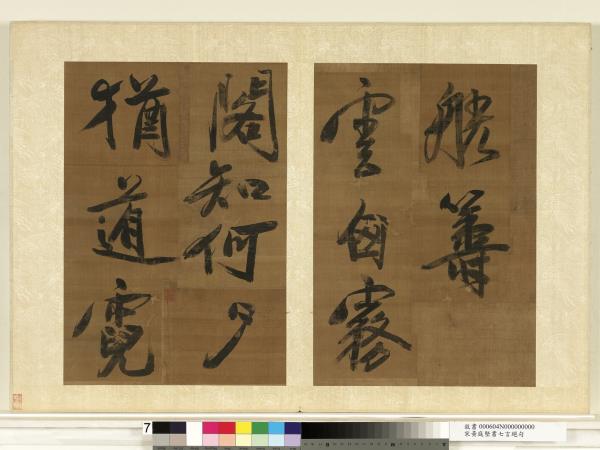 籌
雲囪霧
閣知何夕
猶道霓
7
故書 000604N000000000
宋黃庭堅書七言絕句